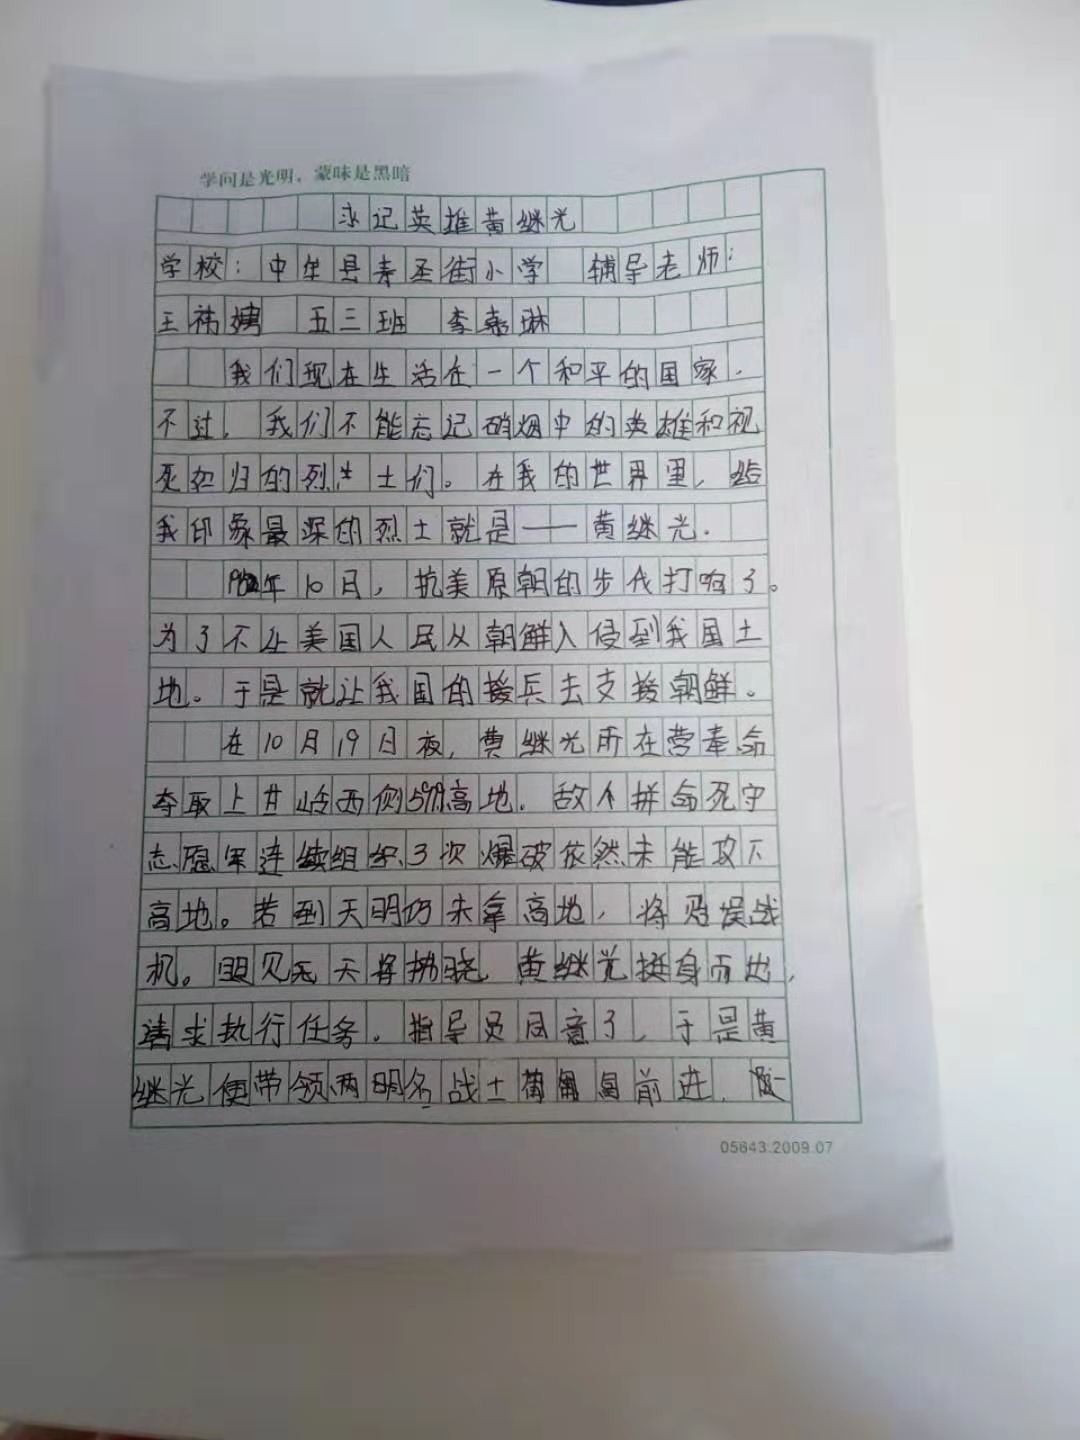 学问是光明，蒙昧是黑暗
永记英雄黄继光
学校：中牟县寿圣街小学 辅导老师：
王祎娉 五三班 李嘉琳
我们现在生活在一个和平的国家．
不过，我们不能忘记硝烟中的英雄和视
死如归的烈士们。在我的世界里，给
我印象最深的烈士就是——黄继光．
年10日，抗美原朝的步伐打响了。
为了不让美国人民从朝鲜入侵到我国土
地。于是就让我国的援兵去支援朝鲜。
在10月19日夜，黄继光所在营奉命
夺取上甘岭西侧597.9高地．敌人拼命死守
志愿军连续组织3次爆破依然未能攻下
高地。若到天明仍未拿高地，将贻误战
机。眼见天将拂晓，黄继光挺身而出，
请求执行任务。指导员同意了，于是黄
继光便带领两名战士匍匐前进．
05643.2009.07